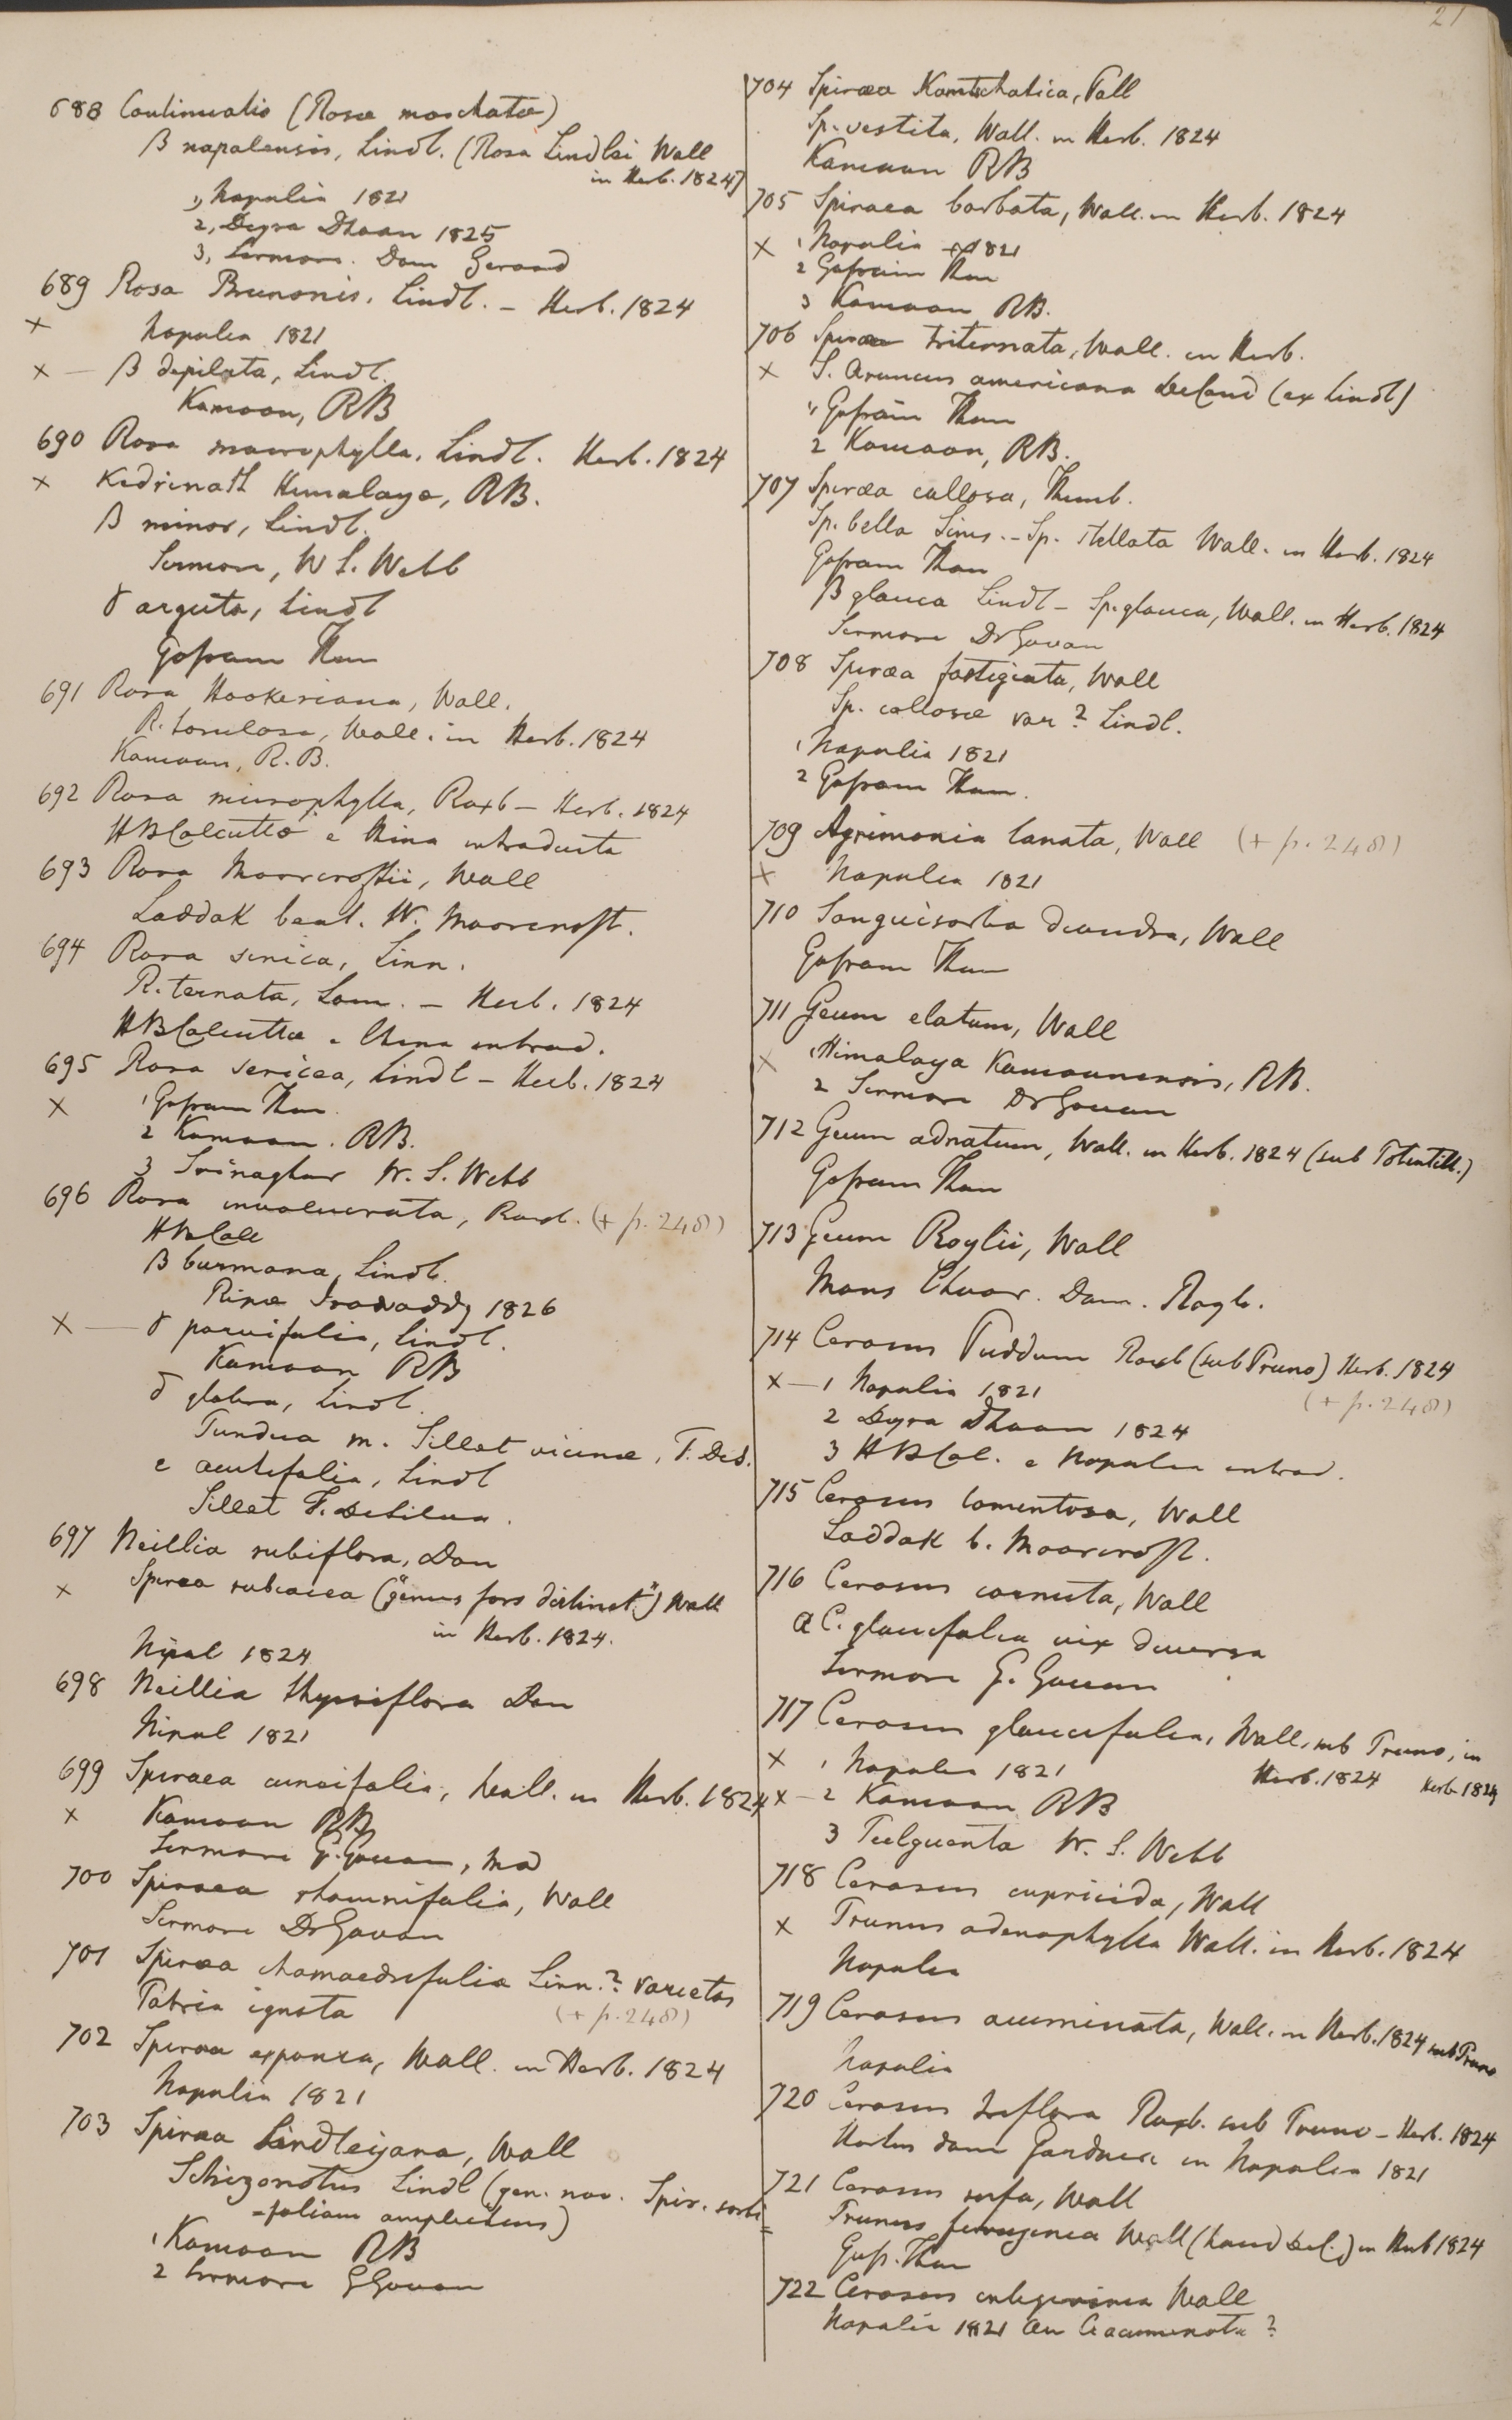 21
688 Continuatio (Rosæ moschatæ)
β napalensis, Lindl. (Rosa Lindlei Wall
in Herb. 1824)
1, Napalia 1821
2, Deyra Dhoon 1825
3, Sirmore. Dom Gerard
689 Rosa Brunonis, Lindl. – Herb. 1824
x Napalia 1821
x — β depilata, Lindl.
Kamoon, RB
690 Rosa macrophylla, Lindl. Herb. 1824
x Kedrinath Himalaya, RB.
β minor, Lindl.
Sirmore, W S. Webb
γ arguta, Lindl
Gosram Than
691 Rosa Hookeriana, Wall.
R. torulosa, Wall. in Herb. 1824
Kamaon, R.B.
692 Rosa microphylla, Roxb – Herb. 1824
HBCalcutta e China introducta
693 Rosa Moorcroftii, Wall
Laddak beat. W. Moorcroft.
694 Rosa sinica, Linn.
R. ternata, Lam. – Herb. 1824
HBCalcutta e China introd.
695 Rosa sericea, Lindl – Herb. 1824
x 1 Gosram Than
2 Kamaon. RB.
3 Srinaghur W. S. Webb
696 Rosa involucrata, Roxb. (+ p. 248)
HBCalc
β burmana, Lindl.
Ripæ Irawaddy 1826
x — γ parvifolia, Lindl.
Kamaon RB
δ glabra, Lindl.
Tundua m. Sillet vicinæ, F. DeS.
e acutifolia, Lindl
Sillet F. DeSilva.
697 Neillia rubiflora, Don
x Spiræa rubacea ("genus fors distinct.") Wall
in Herb. 1824.
Nipal 1824
698 Neillia thyrsiflora Don
Nipal 1821
699 Spiraea cuneifolia, Wall. in Herb. 1824
x Kamaon RB
Sirmore G. Govan, Md
700 Spiraea rhamnifolia, Wall
Sirmore Dr Govan
701 Spiræa chamaedrifolia Linn.? varietas
Patria ignota (+ p. 248)
702 Spiræa expansa, Wall. in Herb. 1824
Napalia 1821
703 Spiræa Lindleyana, Wall
Schizonotus Lindl (gen. nov. Spir. sorbi
=foliam amplectens)
1 Kamaon RB
2 Sirmore G Govan
704 Spiræa Kamtschatica, Pall
Sp. vestita, Wall. in Herb. 1824
Kamaon RB
705 Spiraea barbata, Wall. in Herb. 1824
x 1 Napalia 1821
2 Gosrain Than
3 Kamaon RB.
706 Spiræa triternata, Wall. in Herb.
x S. Aruncus americana DeCand (ex Lindl)
1, Gosrain Than
2 Kamaon, RB.
707 Spiræa callosa, Thunb.
Sp. bella Sims. – Sp. stellata Wall. in Herb. 1824
Gosram Than
β glauca Lindl – Sp. glauca, Wall. in Herb. 1824
Sirmore Dr Govan
708 Spiræa fastigiata, Wall
Sp. callosæ var? Lindl.
1 Napalia 1821
2 Gosram Than.
709 Agrimonia lanata, Wall (+ p. 248)
x Napalia 1821
710 Sanguisorba decandra, Wall
Gosram Than
711 Geum elatum, Wall
x 1 Himalaya Kamaonensis, RB.
2 Sirmore Dr Govan
712 Geum adnatum, Wall. in Herb. 1824 (sub Potentill.)
Gosram Than
713 Geum Roylii, Wall
Mons Chuor. Dom. Royle.
714 Cerasus Puddum Roxb (sub Pruno) Herb. 1824
x — 1 Napalia 1821 (+ p. 248)
2 Deyra Dhoon 1824
3 HBCal. e Napalia introd.
715 Cerasus tomentosa, Wall
Laddak b. Moorcroft.
716 Cerasus cornuta, Wall
a C. glaucifolia vix diversa
Sirmore G. Govan
717 Cerasus glaucifolia, Wall, sub Pruno, in
x 1 Napalia 1821 Herb. 1824 Herb 1824
x – 2 Kamaon RB
3 Tulguenta W. S. Webb
718 Cerasus capricida, Wall
x Prunus adenophylla Wall. in Herb. 1824
Napalia
719 Cerasus acuminata, Wall. in Herb. 1824 sub Pruno
Napalia
720 Cerasus triflora Roxb. sub Pruno – Herb. 1824
Hortus dom Gardneri in Napalia 1821
721 Cerasus rufa, Wall
Prunus ferruginea Wall (haud Del.) in Herb 1824
Gosr. Than
722 Cerasus integerrima Wall
Napalia 1821 an C acuminata?